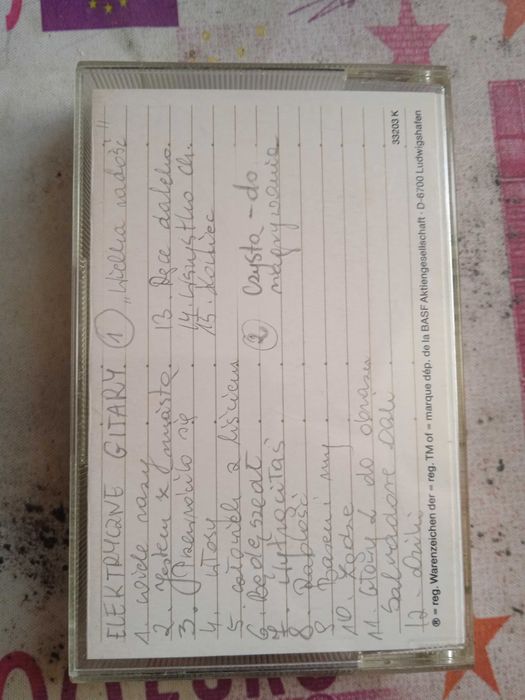 ELEKTRYCZNE GITARY ① "Wielka radość"
1. Wiele razy
2. Jestem z miasta
3. Przewróciło się
4. Włosy
5. Człowiek z liściem
6. Będę szedł
7. Wytrąciłaś
8.
9. Baseni my
10. Ładze
11. Głowy L do obrazu
Salvadore Dali
12. Dziki
13. Ręce daleko
14. Wszystko ch.
15. Koniec
② Czysta - do
nagrywania
33203 K
® = reg. Warenzeichen der = reg. TM of = marque dép. de la BASF Aktiengesellschaft · D-6700 Ludwigshafen